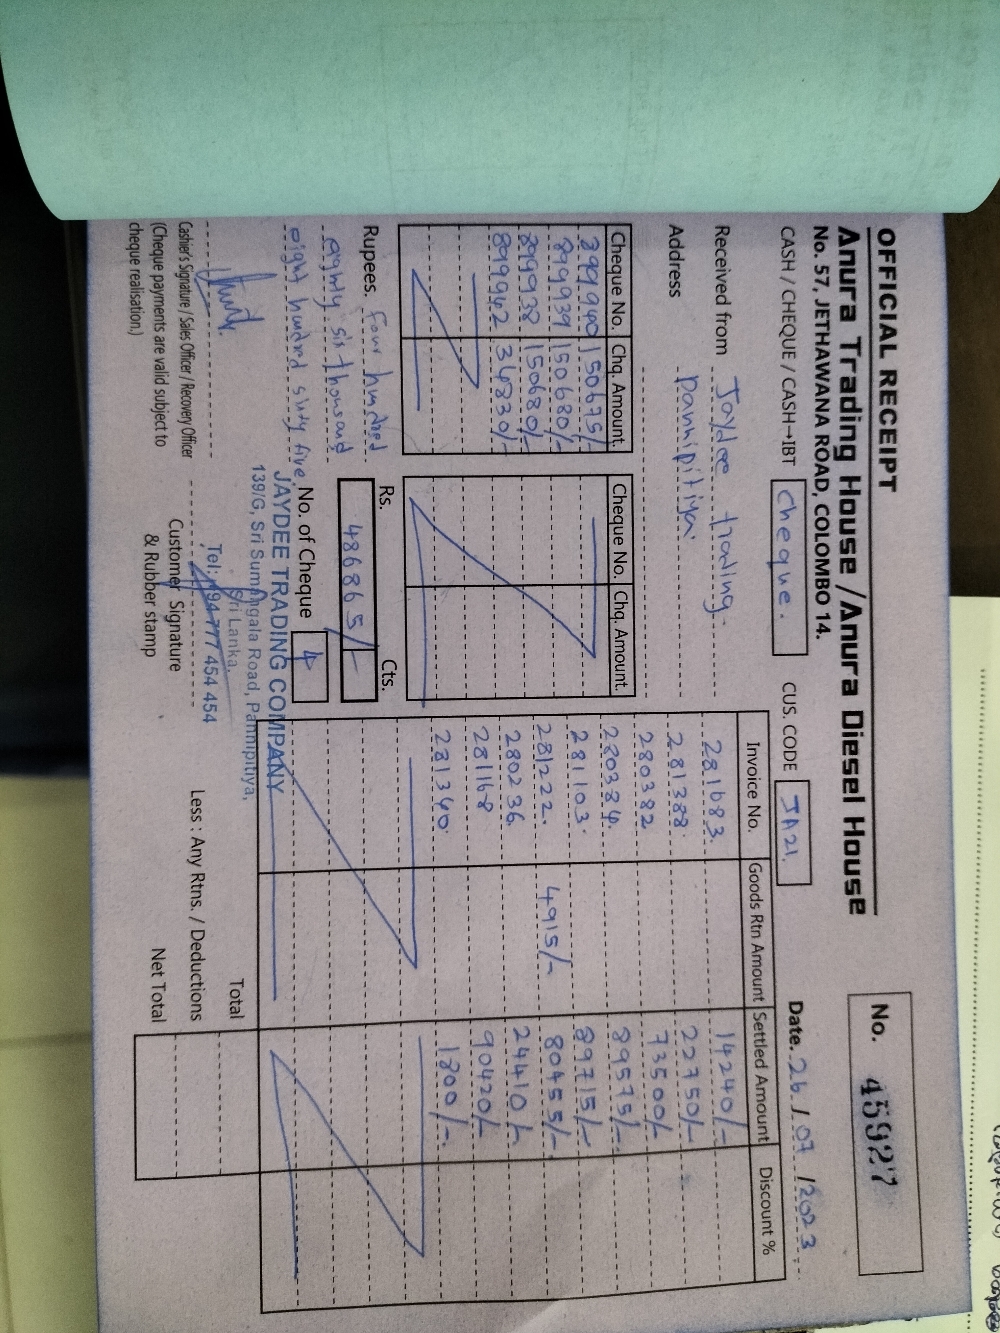 OFFICIAL RECEIPT
Anura Trading House / Anura Diesel House
No. 57, JETHAWANA ROAD, COLOMBO 14.
No. 45927
CASH / CHEQUE / CASH→IBT cheque. CUS. CODE JA21. Date. 26 / 07 / 2023
Received from Jaydee trading.
Address pannipitiya.
Cheque No. Chq. Amount.
899940 150675/-
899939 150680/-
899938 150680/-
899942 34830/-
Cheque No. Chq. Amount.
Invoice No. Goods Rtn Amount Settled Amount Discount %
281083. 14240/-
281388. 22750/-
280382 73500/-
280384. 89575/-
281103. 89715/-
281222. 4915/- 80455/-
280236. 24410/-
281168 90420/-
281340. 1800/-
Rupees. Four hundred
eighty six thousand
eight hundred sixty five
Rs. Cts.
486865/-
No. of Cheque 4
JAYDEE TRADING COMPANY
139/G, Sri Sumangala Road, Pannipitiya,
Sri Lanka.
Tel: +94 777 454 454
Cashier's Signature / Sales Officer / Recovery Officer
(Cheque payments are valid subject to
cheque realisation.)
Customer Signature
& Rubber stamp
Total
Less : Any Rtns. / Deductions
Net Total